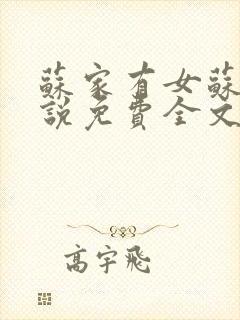 蘇家有女蘇
說免費全文
高宇飛